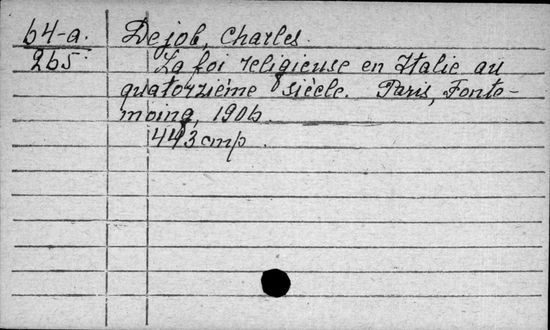 64-a. Dejob, Charles.
265. La foi religieuse en Italie au
quatorzième siècle. Paris, Fonte-
moing, 1906.
443 cmp.